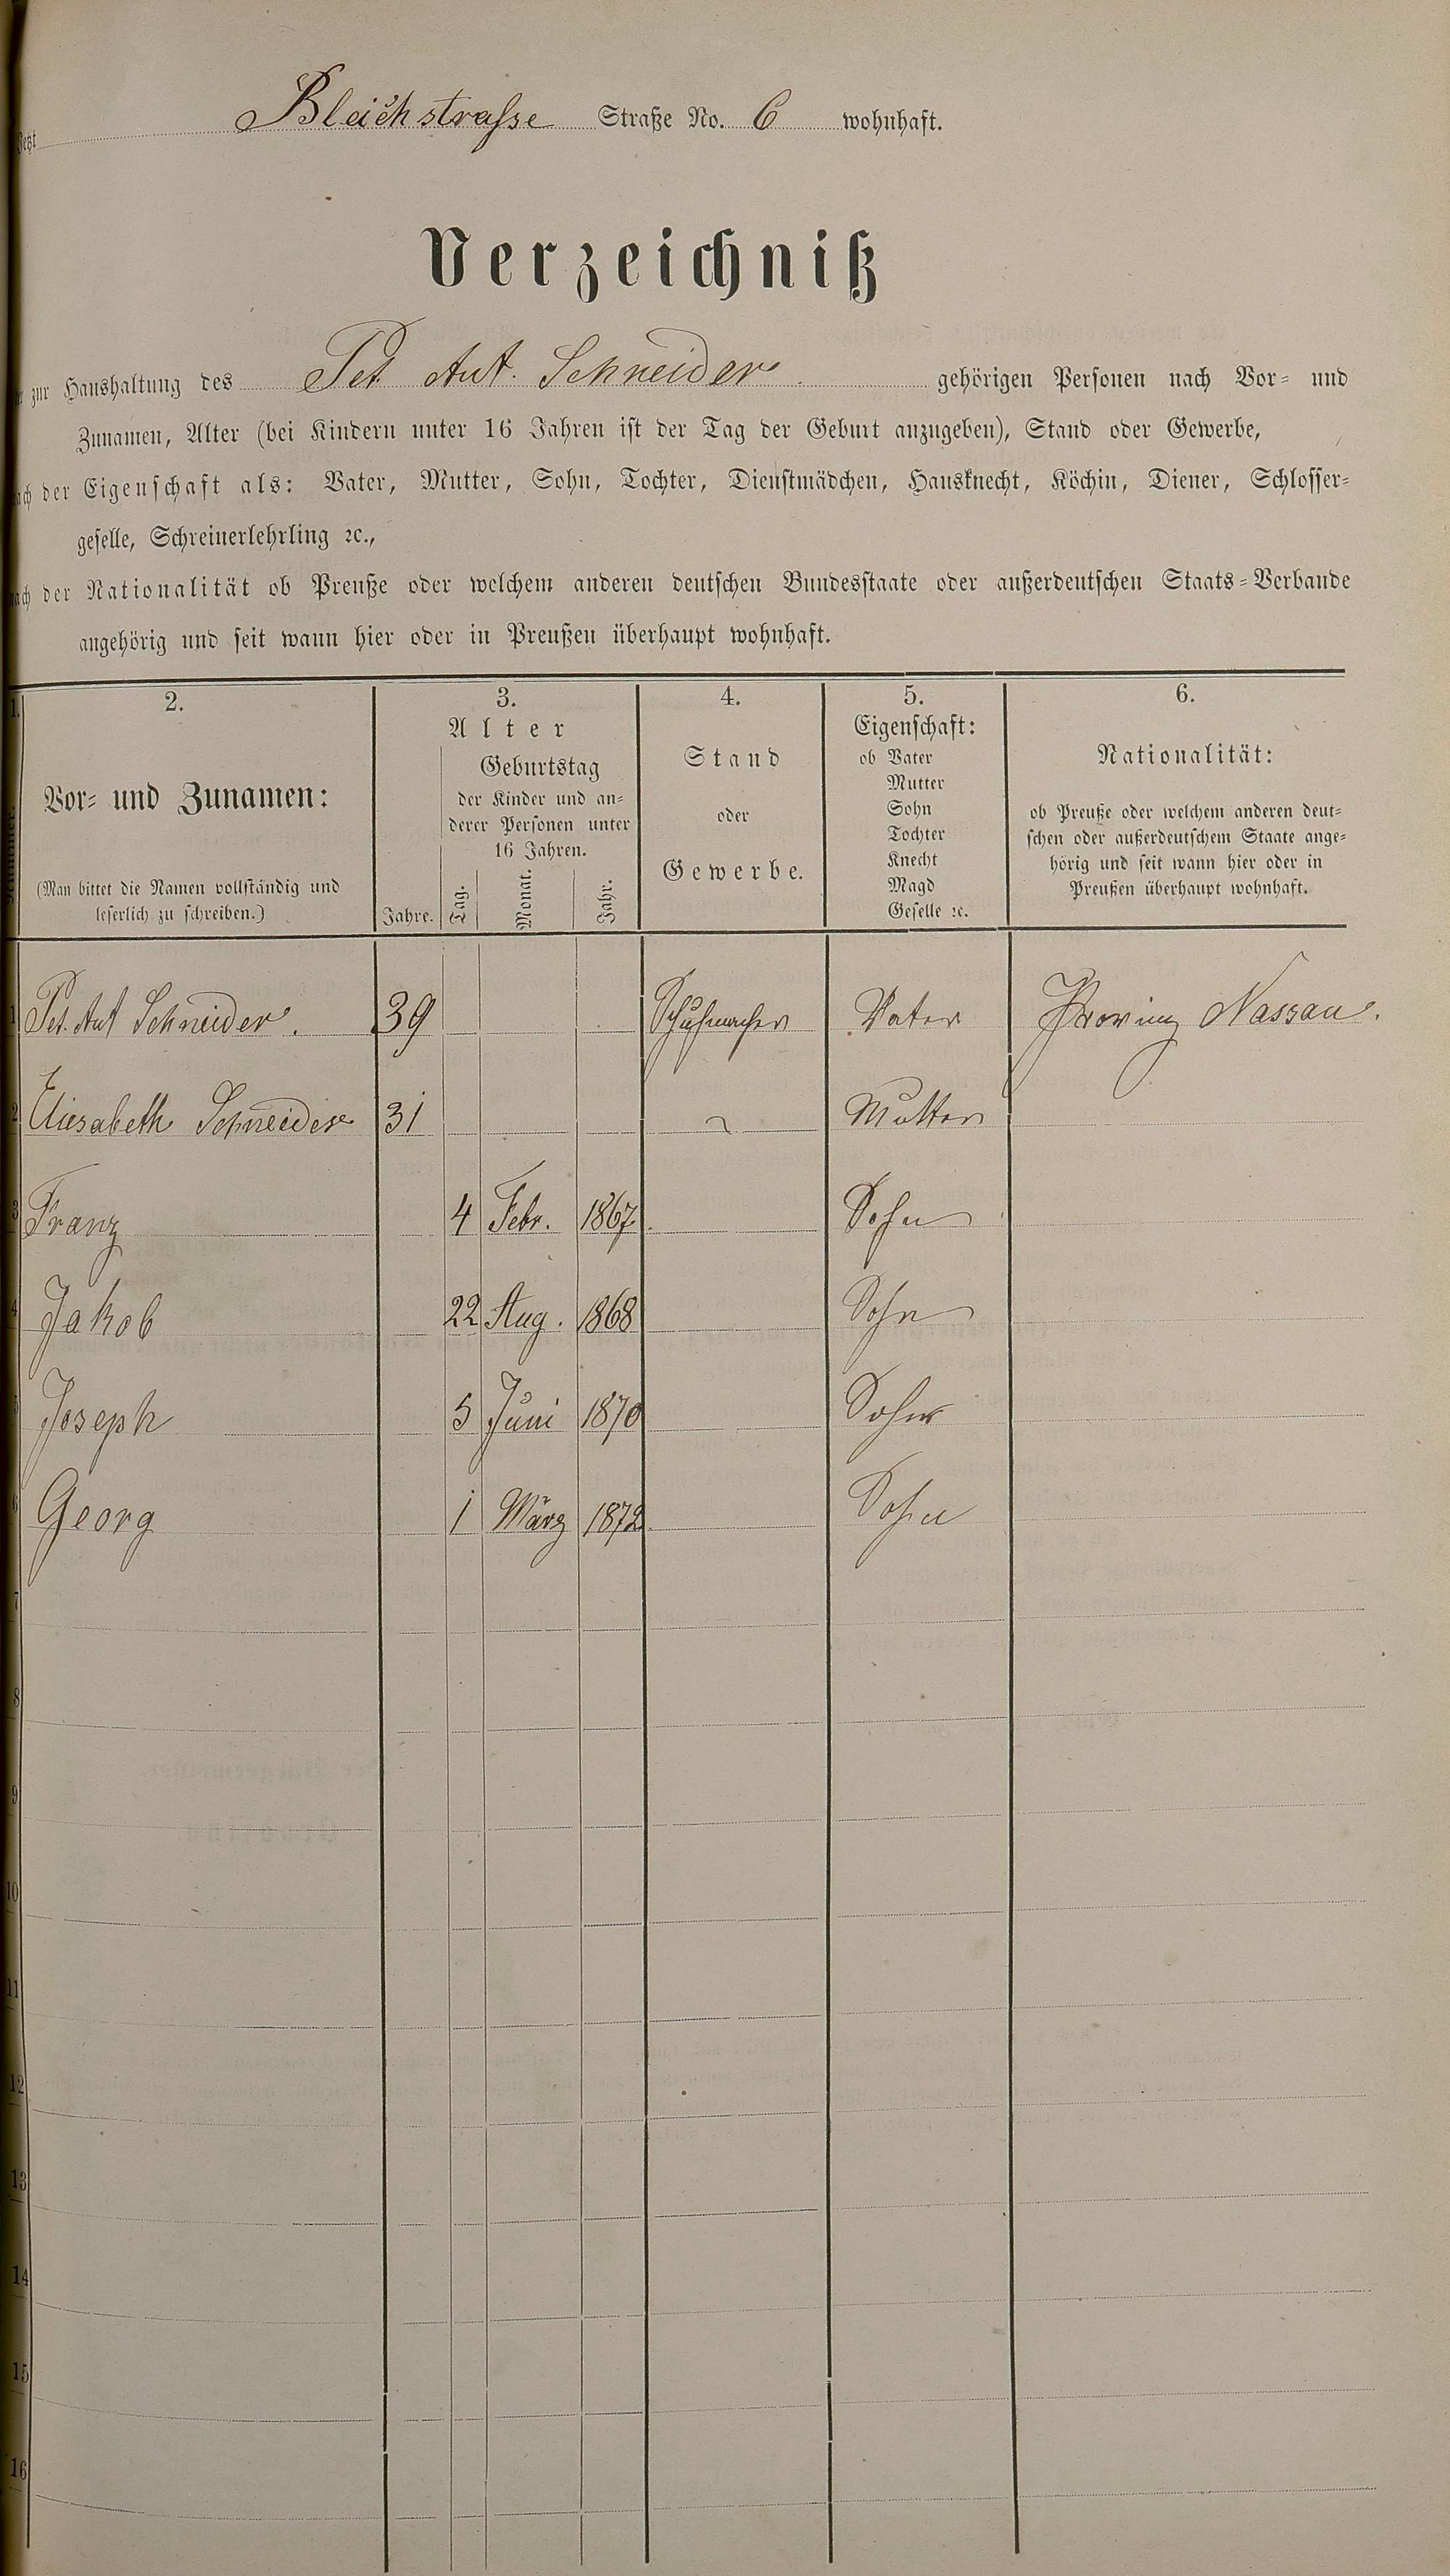 Jetzt Bleichstrasse Straße No. 6 wohnhaft.
Verzeichniß
zur Haushaltung des Pet. Ant. Schneider. gehörigen Personen nach Vor- und
Zunamen, Alter (bei Kindern unter 16 Jahren ist der Tag der Geburt anzugeben), Stand oder Gewerbe,
nach der Eigenschaft als: Vater, Mutter, Sohn, Tochter, Dienstmädchen, Hausknecht, Köchin, Diener, Schlosser-
geselle, Schreinerlehrling ꝛc.,
nach der Nationalität ob Preuße oder welchem anderen deutschen Bundesstaate oder außerdeutschen Staats-Verbande
angehörig und seit wann hier oder in Preußen überhaupt wohnhaft.
1. 2. 3. 4. 5. 6.
Vor- und Zunamen:
(Man bittet die Namen vollständig und
leserlich zu schreiben.)
Alter
Geburtstag
der Kinder und an-
derer Personen unter
16 Jahren.
Jahre. Tag. Monat. Jahr.
Stand
oder
Gewerbe.
Eigenschaft:
ob Vater
Mutter
Sohn
Tochter
Knecht
Magd
Geselle ꝛc.
Nationalität:
ob Preuße oder welchem anderen deut-
schen oder außerdeutschem Staate ange-
hörig und seit wann hier oder in
Preußen überhaupt wohnhaft.
1 Pet. Ant Schneider. 39 Schuhmacher Vater Provinz Nassau.
2 Eliesabeth Schneider 31 Mutter
3 Franz 4 Febr. 1867 Sohn
4 Jakob 22 Aug. 1868 Sohn
5 Joseph 5 Juni 1870 Sohn
6 Georg 1 März 1872 Sohn
7
8
9
10
11
12
13
14
15
16